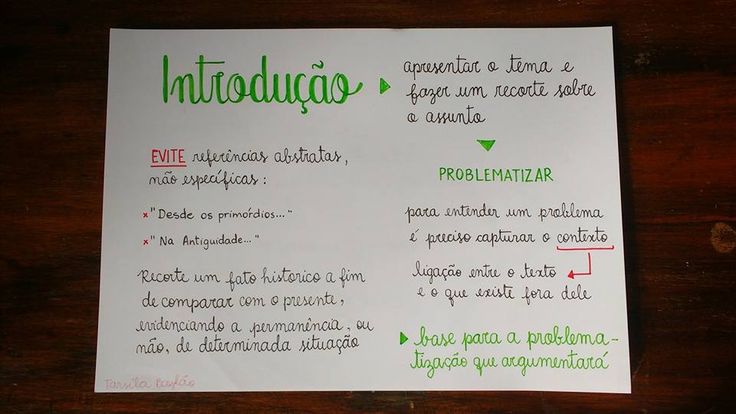 Introdução ▶ apresentar o tema e
fazer um recorte sobre
o assunto
▼
PROBLEMATIZAR
para entender um problema
é preciso capturar o contexto
ligação entre o texto
e o que existe fora dele
▶ base para a problema-
tização que argumentará
EVITE referências abstratas,
não específicas:
x "Desde os primórdios..."
x "Na Antiguidade..."
Recorte um fato historico a fim
de comparar com o presente,
evidenciando a permanência, ou
não, de determinada situação
Tarsila